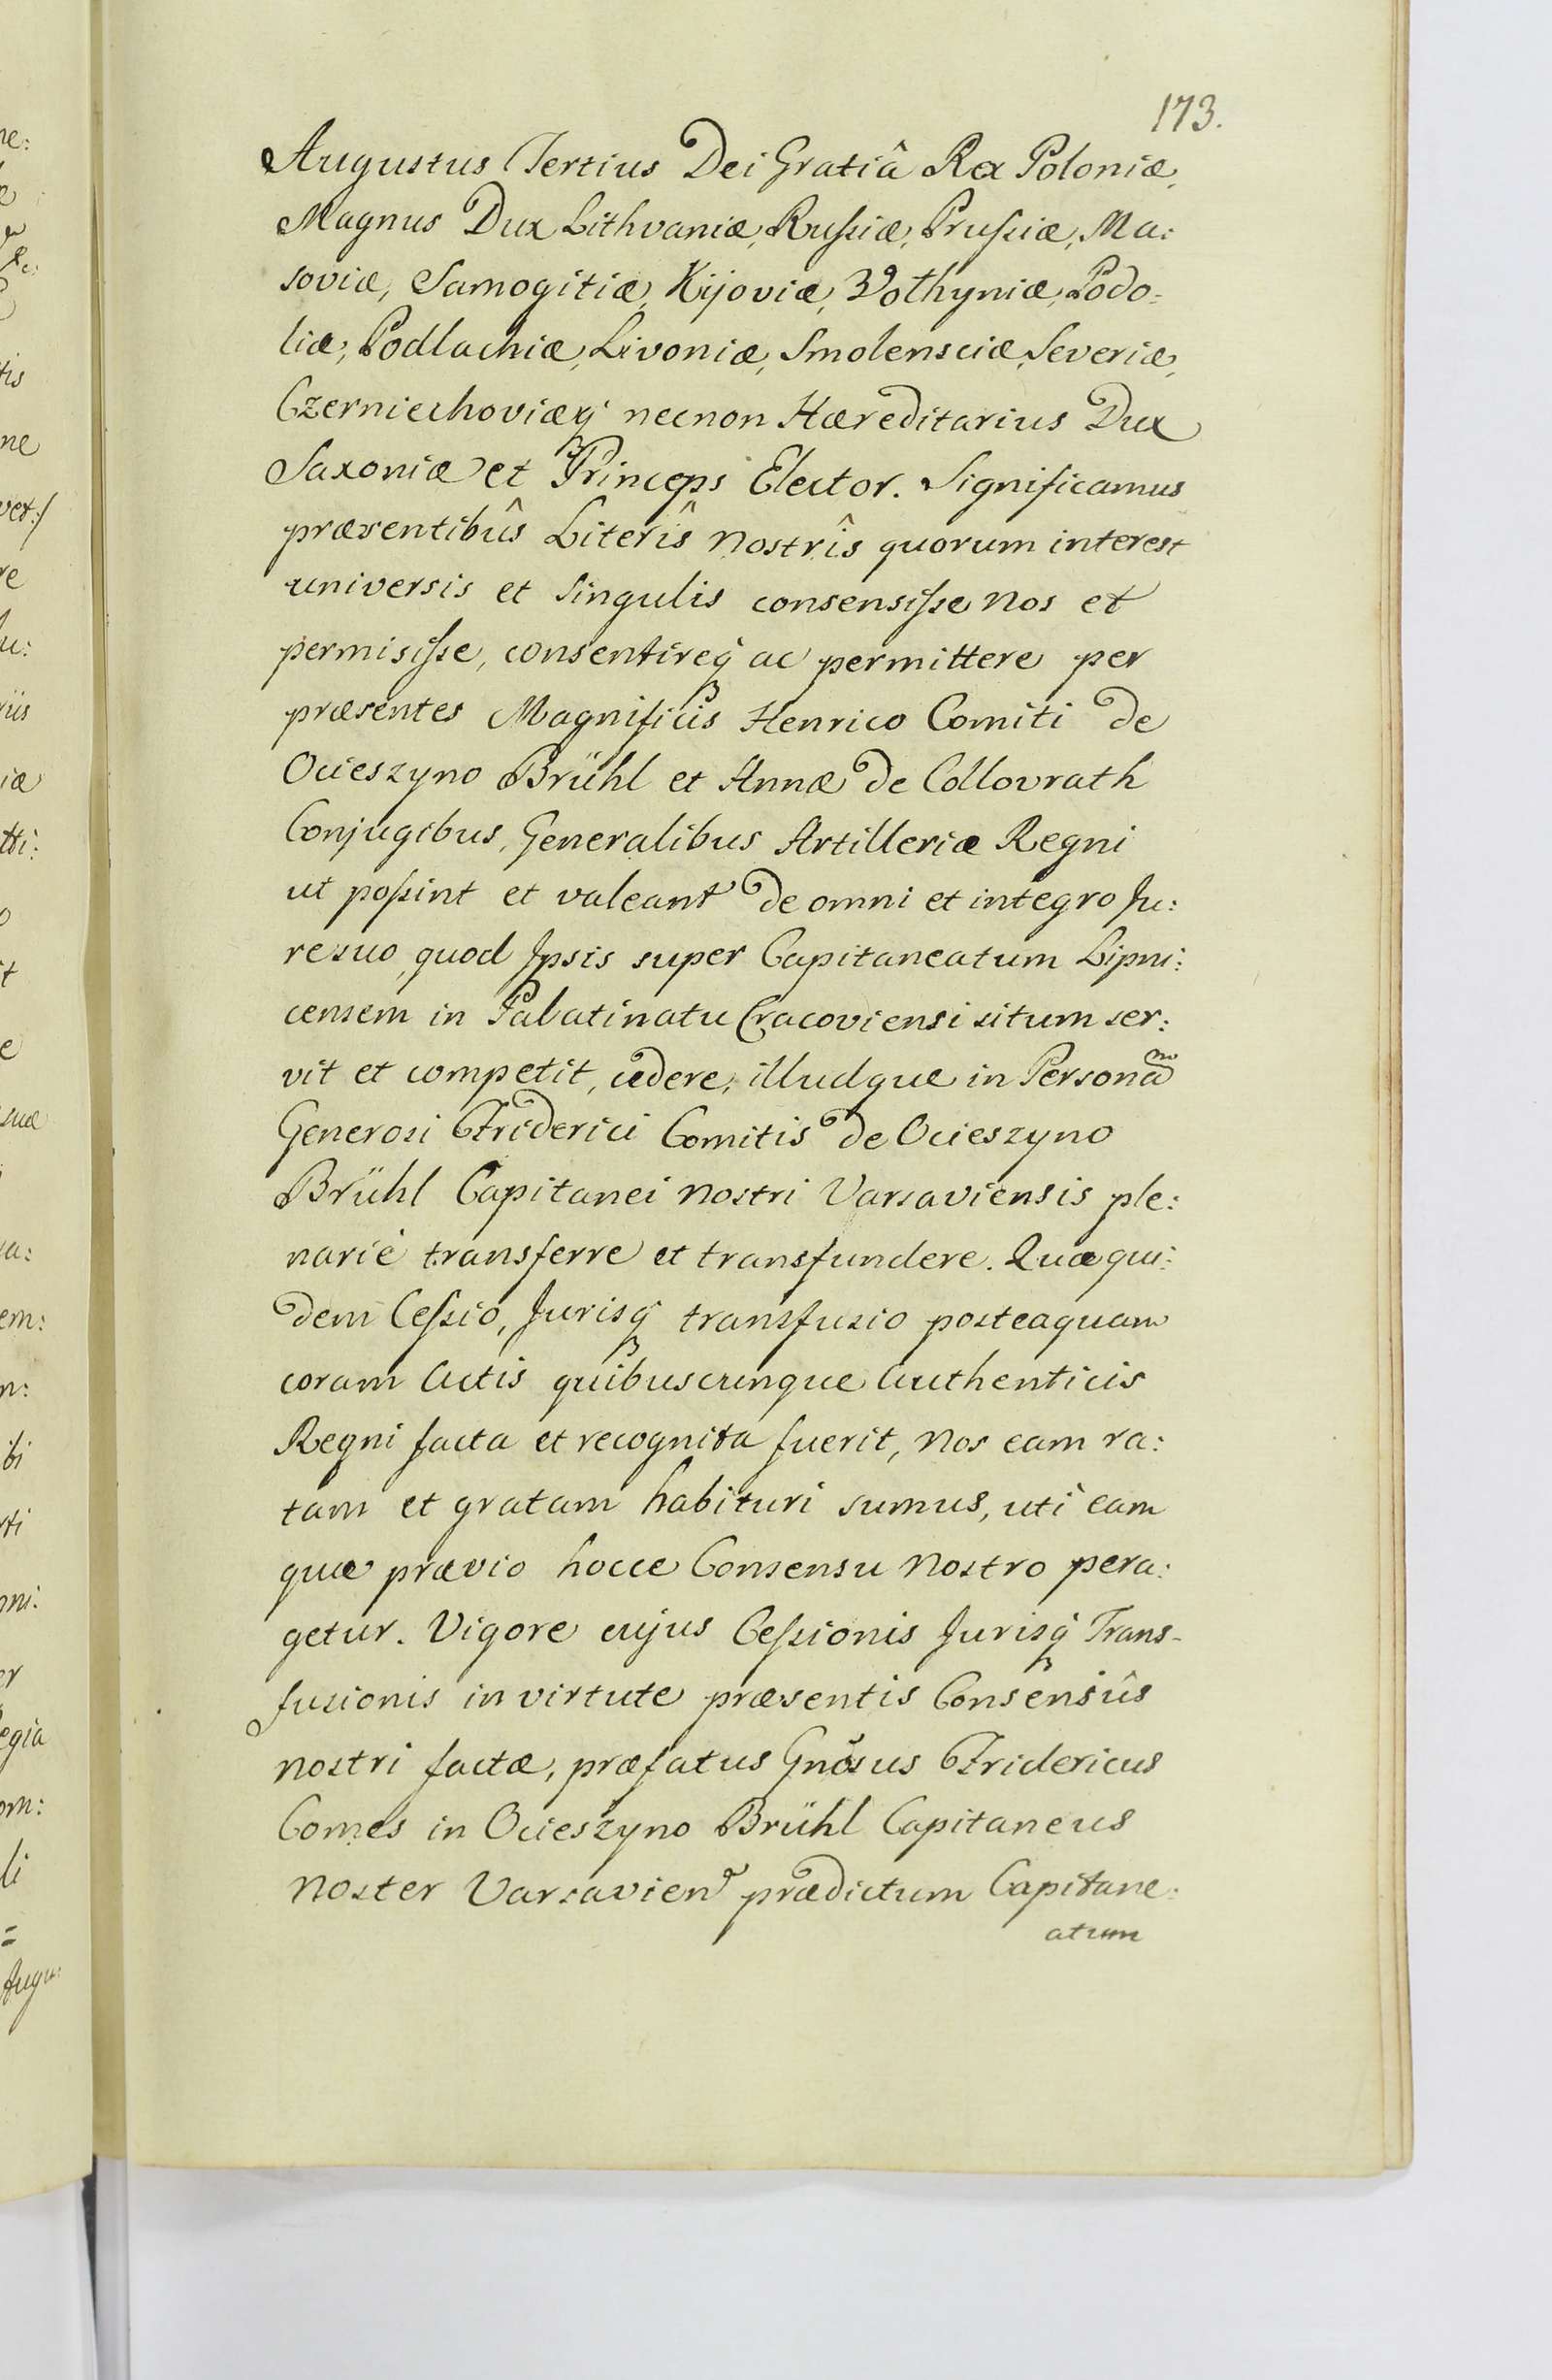 173.
Augustus Tertius Dei Gratiâ Rex Poloniæ,
Magnus Dux Lithvaniæ, Rußiæ, Prußiæ, Ma:
soviæ, Samogitiæ, Kijoviæ, Volhyniæ, Podo:
liæ, Podlachiæ, Livoniæ, Smolensciæ, Severiæ,
Czerniechoviæq́ necnon Hæreditarius Dux
Saxoniæ et Princeps Elector. Significamus
præsentibûs Literîs nostrîs quorum interest
universis et singulis consensiße nos et
permisiße, consentireq́ ac permittere per
præsentes Magnificis Henrico Comiti de
Ocieszyno Brühl et Annæ de Collovrath
Conjugibus, Generalibus Artilleriæ Regni
ut poßint et valeant de omni et integro Ju:
re suo, quod Ipsis super Capitaneatum Lipni:
censem in Palatinatu Cracoviensi situm ser:
vit et competit, cedere, illudque in Personam
Generosi Friderici Comitis de Ocieszyno
Brühl Capitanei nostri Varsaviensis ple:
narie transferre et transfundere. Quæ qui:
dem Ceßio, Jurisq́ transfusio posteaquam
coram Actis quibuscunque Authenticis
Regni facta et recognita fuerit, nos eam ra:
tam et gratam habituri sumus, uti eam
quæ prævio hocce Consensu nostro pera:
getur. Vigore cujus Ceßionis Jurisq́ Trans-
fusionis in virtute præsentis Consensûs
nostri factæ, præfatus Gnõsus Fridericus
Comes in Ocieszyno Brühl Capitaneus
noster Varsavien̄ prædictum Capitane:
atum